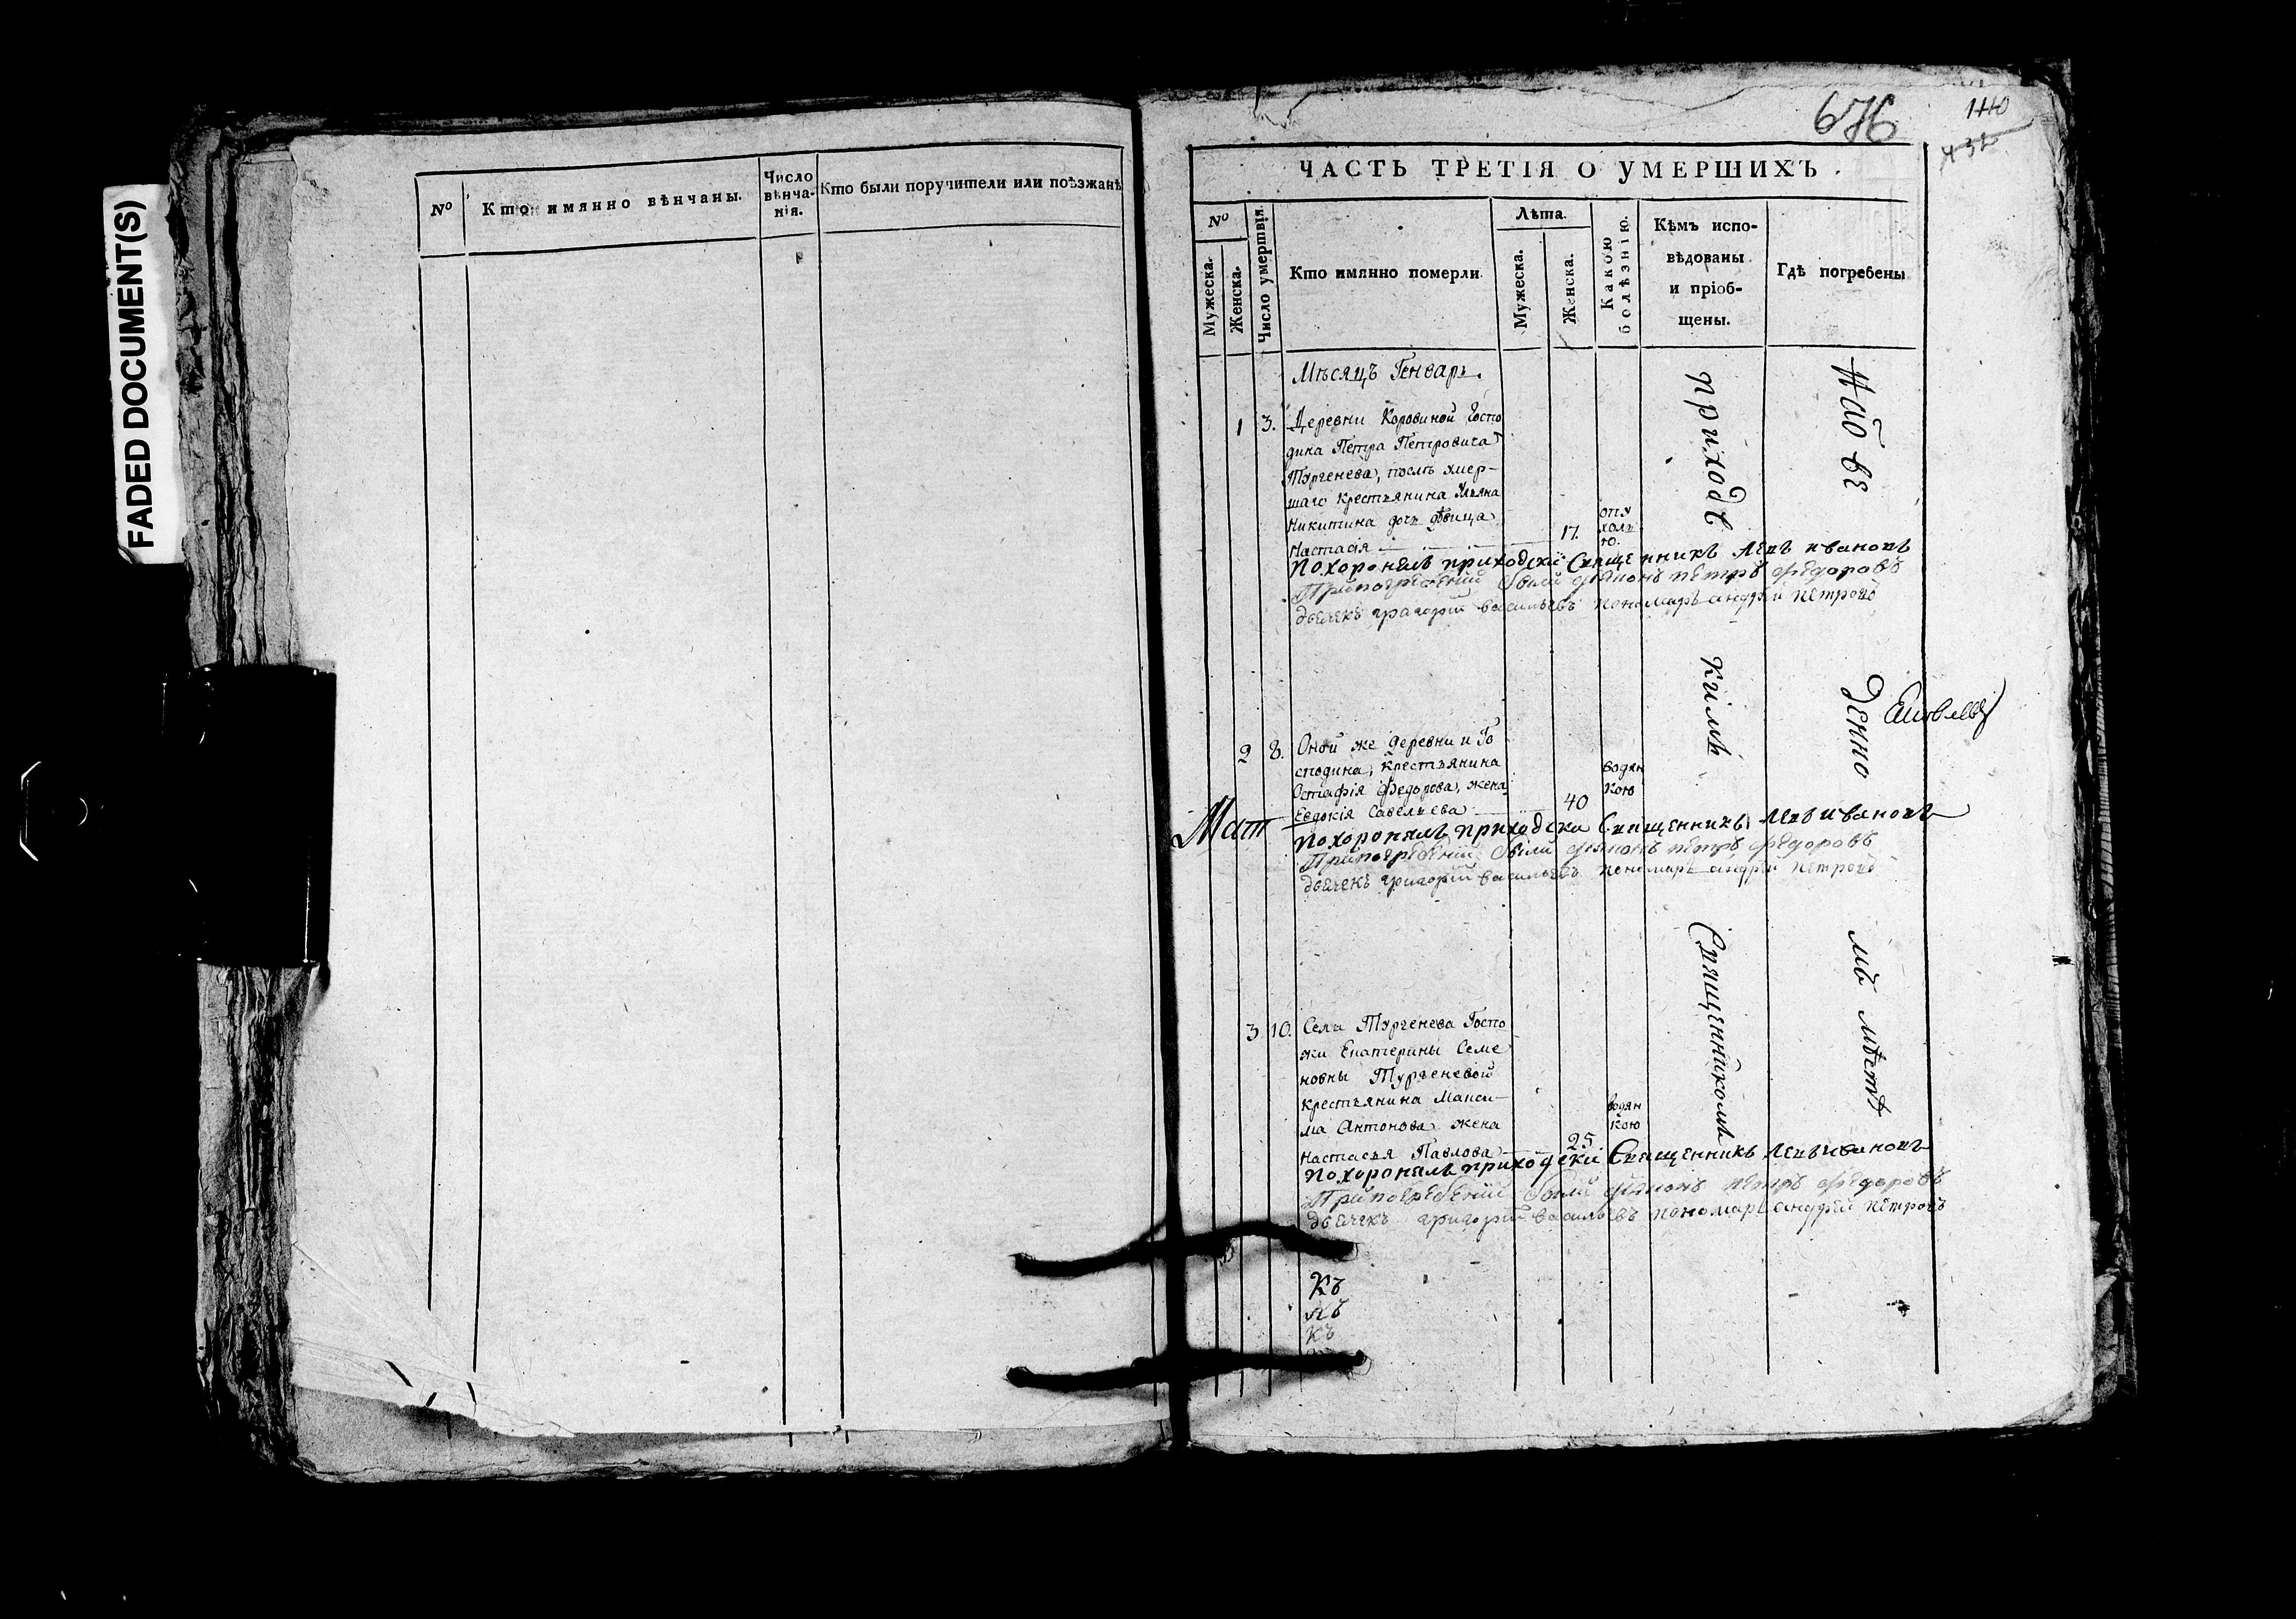 FADED DOCUMENT(S)
№
Кто имянно вѣнчаны.
Число
вѣнча-
нія.
Кто были поручители или поѣзжанѣ
676
140
ЧАСТЬ ТРЕТІЯ О УМЕРШИХЪ.
№
Мужеска.
Женска.
Число умертвія.
Кто имянно померли.
Лѣта.
Мужеска.
Женска.
Какою
болѣзнію.
Кѣмъ испо-
вѣдованы
и пріоб-
щены.
Гдѣ погребены
Мѣсяцъ Генварь.
1 3. Деревни Коровиной Госпо
дина Петра Петровича
Тургенева, послѣ умер-
шаго крестьянина Ульяна
Никитина дочь дѣвица
Настасія 17. опу
холь
ю.
Похоронялъ приходски Священникъ Левъ Ивановъ
Припогребеніи были діаконъ петръ федоровъ
дьячекъ григорій васильевъ пономарь андрѣй петровъ
2 8. Оной же деревни и Го
сподина, крестьянина
Остафія Федорова, жена
Евдокія Савельева 40 водян
кою
Мат
Похоронялъ приходски Священникъ Левъ Ивановъ
Припогребеніи были діаконъ петръ федоровъ
дьячекъ григорій васильевъ пономарь андрѣй петровъ
3 10. Села Тургенева Госпо
жи Екатерины Семе
новны Тургеневой
крестьянина Макси-
ма Антонова жена
Настасья Павлова 25. водян
кою
Похоронялъ приходски Священникъ Левъ Ивановъ
Припогребеніи были діаконъ петръ федоровъ
дьячекъ григорій васильевъ пономарь андрѣй петровъ
приходс
кимъ
Священникомъ
На отве
денно
мъ мѣстѣ
Къ